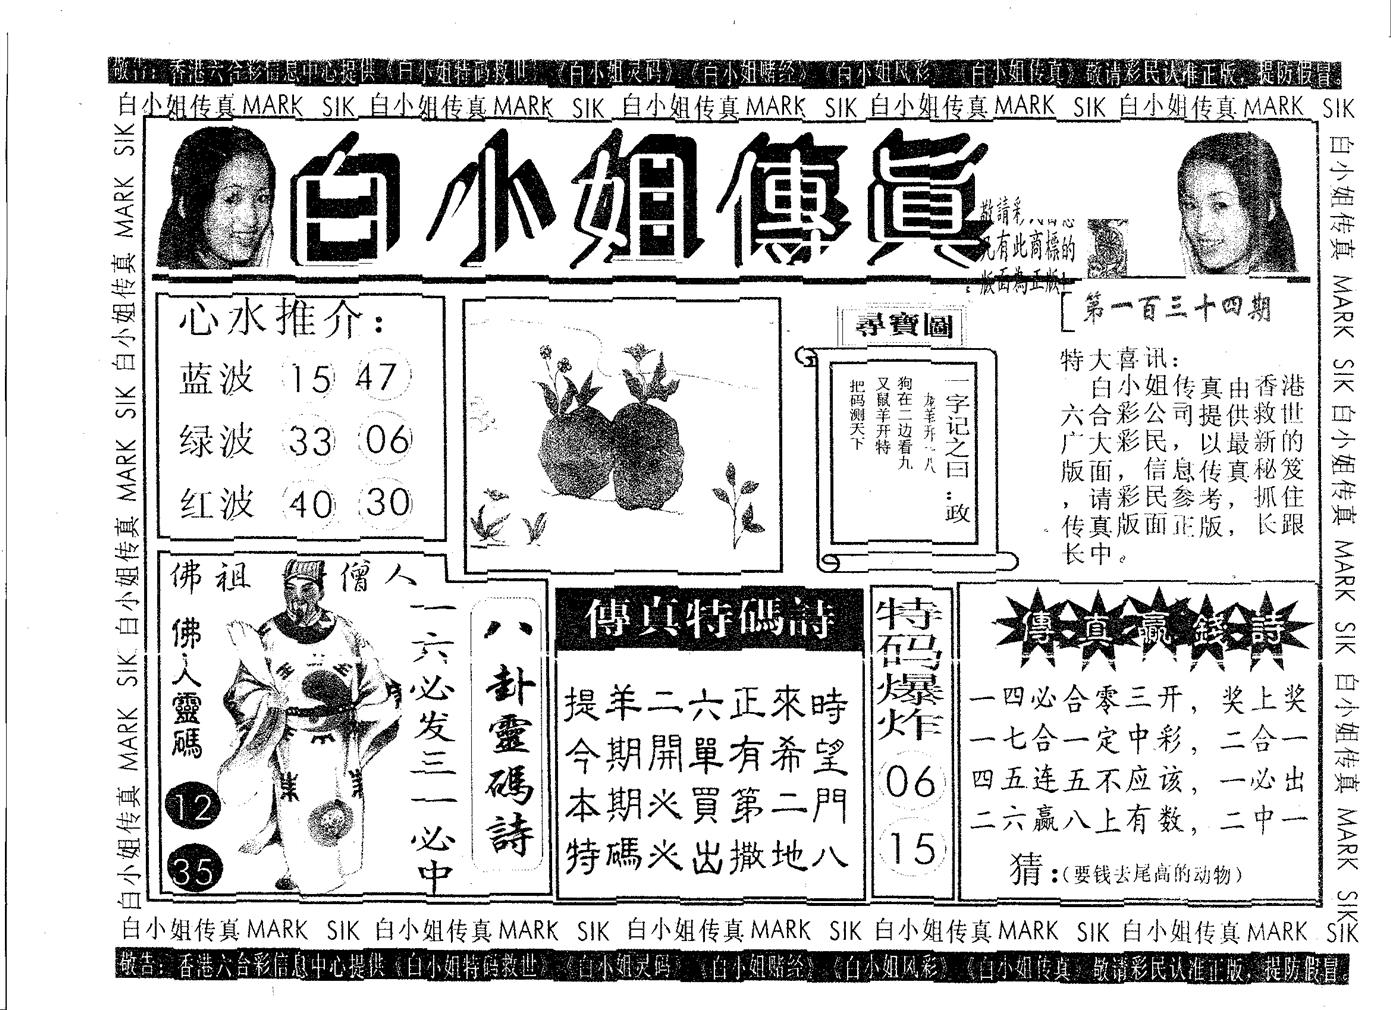 敬告：香港六合彩信息中心提供《白小姐特码救世》《白小姐灵码》《白小姐赌经》《白小姐风彩》《白小姐传真》敬请彩民认准正版，提防假冒。
白小姐传真 MARK SIK 白小姐传真 MARK SIK 白小姐传真 MARK SIK 白小姐传真 MARK SIK 白小姐传真 MARK SIK
白小姐传真 MARK SIK 白小姐传真 MARK SIK 白小姐传真 MARK SIK
白小姐傳眞
敬請彩
凡有此商標的
版面為正版
第一百三十四期
心水推介：
蓝波 15 47
绿波 33 06
红波 40 30
尋寶圖
一字记之曰：政
龙羊开一八
狗在二边看九
又鼠羊开特
把码测天下
特大喜讯：
白小姐传真由香港
六合彩公司提供救世
广大彩民，以最新的
版面，信息传真秘笈
，请彩民参考，抓住
传真版面正版，长跟
长中。
佛祖 僧人
佛人靈碼
12
35
八卦靈碼詩
一六必发三一必中
傳真特碼詩
提羊二六正來時
今期開單有希望
本期火買第二門
特碼火出撒地八
特码爆炸
06
15
傳真贏錢詩
一四必合零三开，奖上奖
一七合一定中彩，二合一
四五连五不应该，一必出
二六赢八上有数，二中一
猜：（要钱去尾高的动物）
白小姐传真 MARK SIK 白小姐传真 MARK SIK 白小姐传真 MARK SIK
白小姐传真 MARK SIK 白小姐传真 MARK SIK 白小姐传真 MARK SIK 白小姐传真 MARK SIK 白小姐传真 MARK SIK
敬告：香港六合彩信息中心提供《白小姐特码救世》《白小姐灵码》《白小姐赌经》《白小姐风彩》《白小姐传真》敬请彩民认准正版，提防假冒。